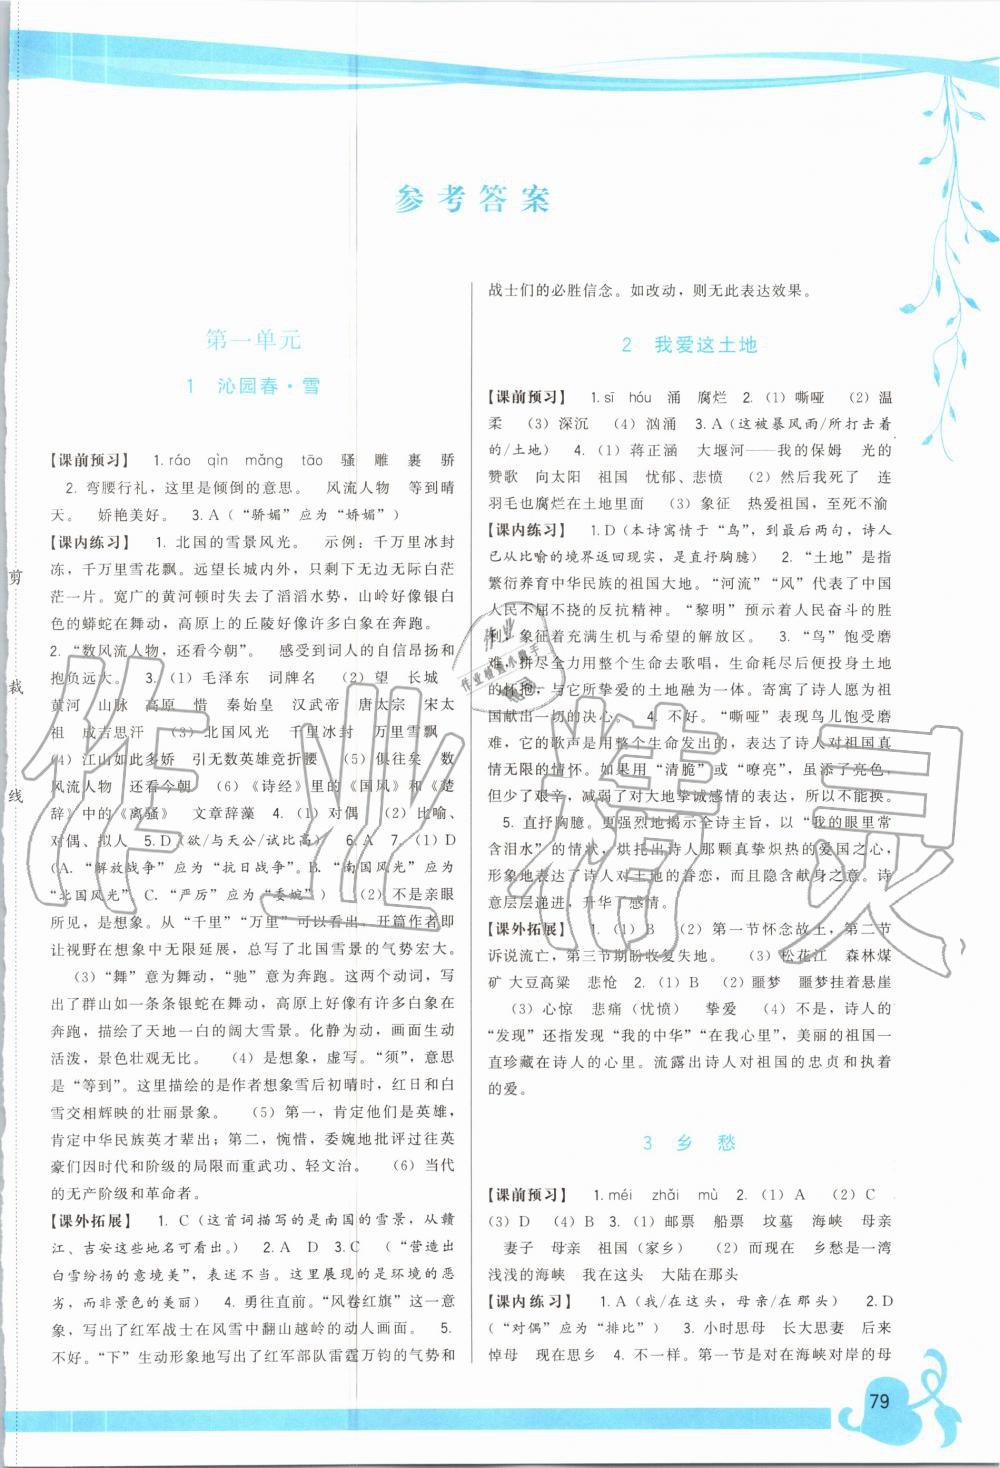 参考答案
第一单元
1 沁园春·雪
【课前预习】 1.ráo qìn mǎng tāo 骚 雕 裹 骄
2. 弯腰行礼，这里是倾倒的意思。 风流人物 等到晴
天。 娇艳美好。 3.A（“骄媚”应为“娇媚”）
【课内练习】 1. 北国的雪景风光。 示例：千万里冰封
冻，千万里雪花飘。远望长城内外，只剩下无边无际白茫
茫一片。宽广的黄河顿时失去了滔滔水势，山岭好像银白
色的蟒蛇在舞动，高原上的丘陵好像许多白象在奔跑。
2. “数风流人物，还看今朝”。 感受到词人的自信昂扬和
抱负远大。 3.（1）毛泽东 词牌名 （2）望 长城
黄河 山脉 高原 惜 秦始皇 汉武帝 唐太宗 宋太
祖 成吉思汗 （3）北国风光 千里冰封 万里雪飘
（4）江山如此多娇 引无数英雄竞折腰 （5）俱往矣 数
风流人物 还看今朝 （6）《诗经》里的《国风》和《楚
辞》中的《离骚》 文章辞藻 4.（1）对偶 （2）比喻、
对偶、拟人 5.D（欲/与天公/试比高） 6.A 7.（1）D
（A.“解放战争”应为“抗日战争”。B.“南国风光”应为
“北国风光” C.“严厉”应为“委婉”） （2）不是亲眼
所见，是想象。从“千里”“万里”可以看出，开篇作者即
让视野在想象中无限延展，总写了北国雪景的气势宏大。
（3）“舞”意为舞动，“驰”意为奔跑。这两个动词，写
出了群山如一条条银蛇在舞动，高原上好像有许多白象在
奔跑，描绘了天地一白的阔大雪景。化静为动，画面生动
活泼，景色壮观无比。 （4）是想象，虚写。“须”，意
是“等到”。这里描绘的是作者想象雪后初晴时，红日和白
雪交相辉映的壮丽景象。 （5）第一，肯定他们是英雄，
肯定中华民族英才辈出；第二，惋惜，委婉地批评过往英
豪们因时代和阶级的局限而重武功、轻文治。 （6）当代
的无产阶级和革命者。
【课外拓展】 1. C（这首词描写的是南国的雪景，从赣
江、吉安这些地名可看出。） 2.A D 3.C（“营造出
白雪纷扬的意境美”，表述不当。这里展现的是环境的恶
劣，而非景色的美丽） 4. 勇往直前。“风卷红旗”这一意
象，写出了红军战士在风雪中翻山越岭的动人画面。 5.
不好。“下”生动形象地写出了红军部队雷霆万钧的气势和
战士们的必胜信念。如改动，则无此表达效果。
2 我爱这土地
【课前预习】 1.sī hóu 涌 腐烂 2.（1）嘶哑 （2）温
柔 （3）深沉 （4）汹涌 3.A（这被暴风雨/所打击着
的/土地） 4.（1）蒋正涵 大堰河——我的保姆 光的
赞歌 向太阳 祖国 忧郁、悲愤 （2）然后我死了 连
羽毛也腐烂在土地里面 （3）象征 热爱祖国，至死不渝
【课内练习】 1.D（本诗寓情于“鸟”，到最后两句，诗人
已从比喻的境界返回现实，是直抒胸臆） 2.“土地”是指
繁衍养育中华民族的祖国大地。“河流”“风”代表了中国
人民不屈不挠的反抗精神。“黎明”预示着人民奋斗的胜
利，象征着充满生机与希望的解放区。 3. “鸟”饱受磨
难，拼尽全力用整个生命去歌唱，遇到曙光愿投入土地
的怀抱，与它所挚爱的土地融为一体。寄寓了诗人愿为祖
国献出一切的决心。 4. 不好。“嘶哑”表现鸟儿饱受磨
难，它的歌声是用整个生命发出的，表达了诗人对祖国真
情无限的情怀。如果用“清脆”或“嘹亮”，虽添了亮色，
但少了艰辛，减弱了对大地挚诚情感的表达，所以不能换。
5. 直抒胸臆。更强烈地揭示全诗主旨，以“我的眼里常
含泪水”的情状，烘托出诗人那颗真挚炽热的爱国之心，
形象地表达了诗人对土地的眷恋，而且隐含献身之意。诗
意层层递进，升华了感情。
【课外拓展】 1.（1）B （2）第一节怀念故土，第二节
诉说流亡，第三节期盼收复失地。 （3）松花江 森林煤
矿 大豆高粱 悲怆 2.（1）B （2）噩梦 噩梦挂着悬崖
（3）心惊 悲痛（忧愤） 挚爱 （4）不是，诗人的
“发现”还指发现“我的中华”“在我心里”，美丽的祖国一
直珍藏在诗人的心里。流露出诗人对祖国的忠贞和执着
的爱。
3 乡 愁
【课前预习】 1.méi zhǎi mù 2.（1）A （2）C
（3）D （4）B 3.（1）邮票 船票 坟墓 海峡 母亲
妻子 母亲 祖国（家乡） （2）而现在 乡愁是一湾
浅浅的海峡 我在这头 大陆在那头
【课内练习】 1.A（我/在这头，母亲/在那头） 2.D
（“对偶”应为“排比”） 3. 小时思母 长大思妻 后来
悼母 现在思乡 4. 不一样。第一节是对在海峡对岸的母
79
剪
裁
线
作业精灵
作业
作业检查小助手